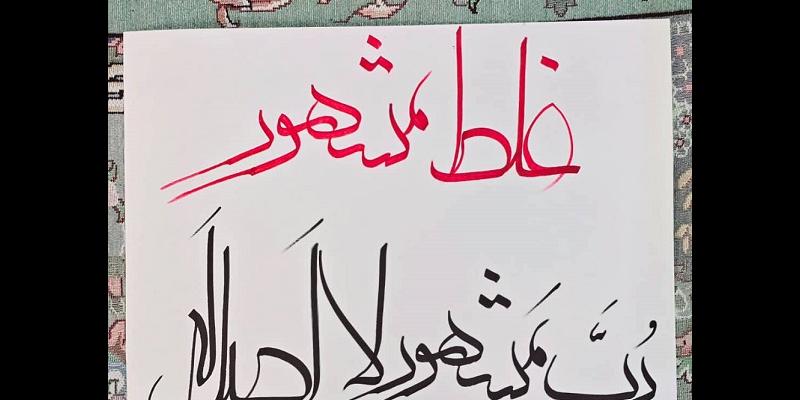 غلط مشهور
رُبَّ مَشهور لا اَصل له